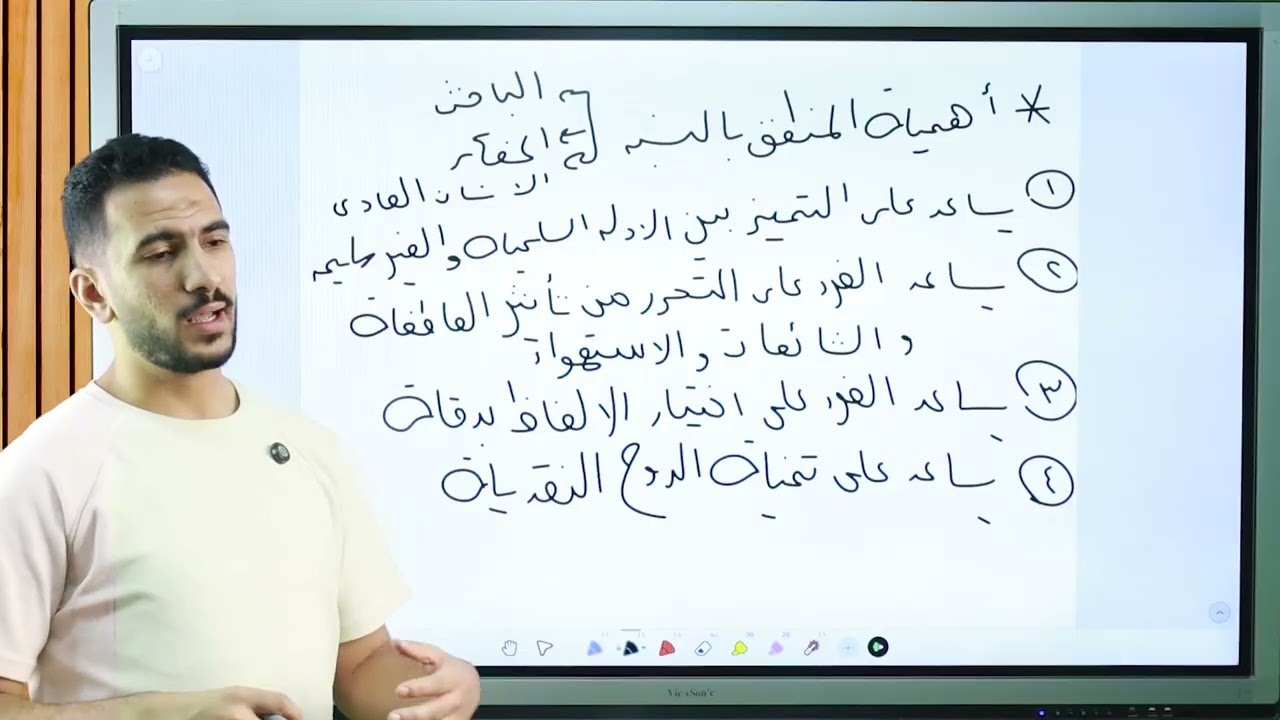 * أهمية المنطق بالنسبه
الباحث
المفكر
الانسان العادى
١ يساعد على التميز بين الادله السليمة والغير سليمه
٢ يساعد الفرد على التحرر من تأثير العاطفة
والشائعات والاستهواء
٣ يساعد الفرد على اختيار الالفاظ بدقة
٤ يساعد على تنمية الروح النقدية
ViewSonic